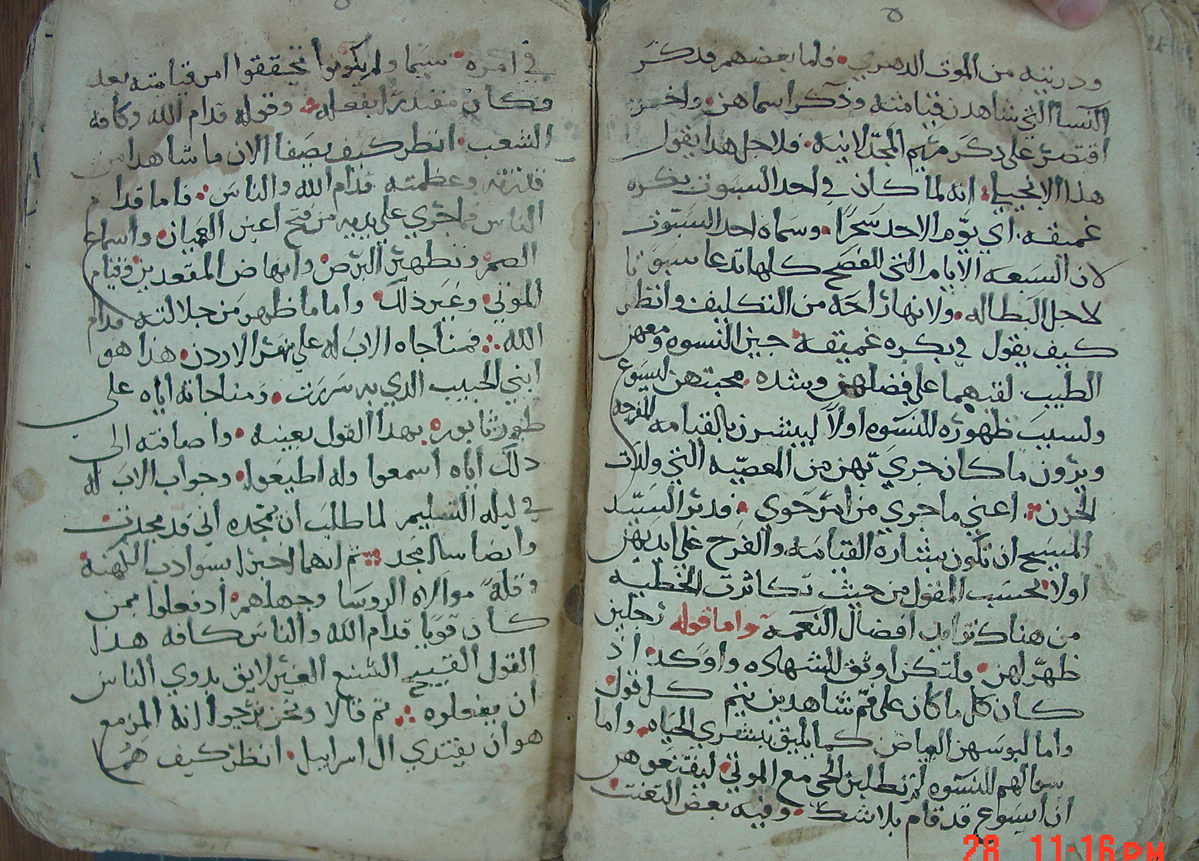 ودريته من الموت الدهري. فاما بعضهم فذكر
النسا التي شاهدن قيامته وذكر اسماهن. واخر
اقتصر على ذكر مريم المجدلانيه. فلاجل هذا يقول
هذا الانجيلي. انه لما كان في احد السبوت بكره
غميقه. اي يوم الاحد سحرا. وسماه احد السبوت
لان السبعه الايام التي للفصح كلها تدعا سبوتا
لاجل البطاله. ولانها راحه من التكليف وانظر
كيف يقول في بكره غميقه جين النسوه ومعهن
الطيب لفنهما على فضلهن وشده محبتهن ليسوع
ولسبب ظهوره للنسوه اولا ليبشرن بالقيامه المفرحه
ويرون ما كان جري تهن من المعصيه التي ولدت
الحزن. اعني ما جري من امر حوي. فدبر السيد
المسيح ان تكون بشاره القيامه والفرح على ايديهن
اولا. بحسب المقول من حيث تكاثرت الخطيه
من هناك تزايد افضال النعمه واما قوله رجلين
ظهرا لهن. فلتكن اوثق للشهاده واوكد. اذ
كان كل ما كان على فم شاهدين يتم كل قول
واما لبوسهن البياض كما يليق بمبشري الحياه. واما
سوالهم للنسوه لم تطلبن الحي مع الموتي. ليقنعوهن
ان ايسوع قد قام بلا شك. وفيه بعض التعنت
في امره. سيما ولم يكونوا تحققوا امر قيامته بعد
وكان مقتدرا بفعله. وقوله قدام الله وكافه
الشعب. انظر كيف يصفا الان ما شاهدا من
قدرته وعظمته قدام الله والناس. فاما قدام
الناس فما جري على يديه من فتح اعين العميان. واسماع
الصم. وتطهير البرص. وانهاض المقعدين. وقيام
الموتي. وغير ذلك. واما ما ظهر من جلالته قدام
الله. فمناجاه الاب له على نهر الاردن. هذا هو
ابني الحبيب الذي به سررت. ومناجاته اياه على
طور ثابور. بهذا القول بعينه. واضافته الى
ذلك اياه اسمعوا وله اطيعوا. وجواب الاب له
في ليله التسليم لما طلب ان يمجده اني قد مجدت
وايضا سامجد. ثم انهما اخبرا بسوادب الكهنه
وقله موالاه الروسا وجهلهم. اذ فعلوا بمن
كان قويا قدام الله والناس كافه هذا
القول القبيح الشنع الغير لايق بدوي الناس
ان يفعلوه. ثم قالا ونحن نرجوا انه المزمع
هو ان يفتدي ال اسراييل. انظر كيف هما
28 11:16 PM